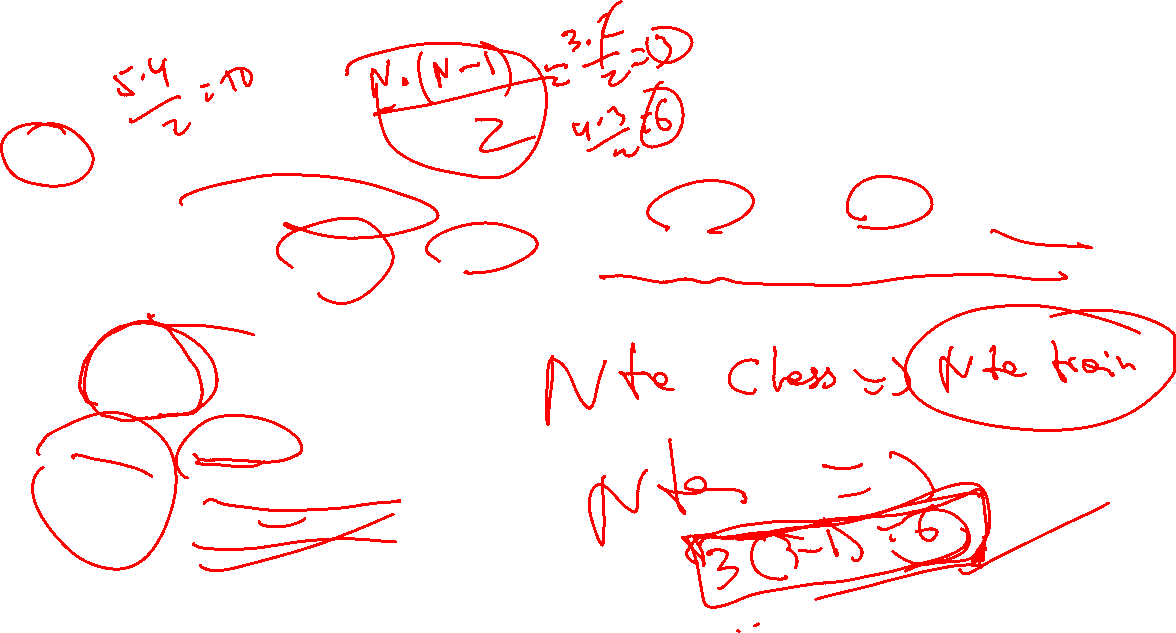 5.4/2 = 10
N.(N-1)/2 = 3.2/2 = 3
4.3/2 = 6
N te Class => N te train
N te =>
3(3-1) = 6